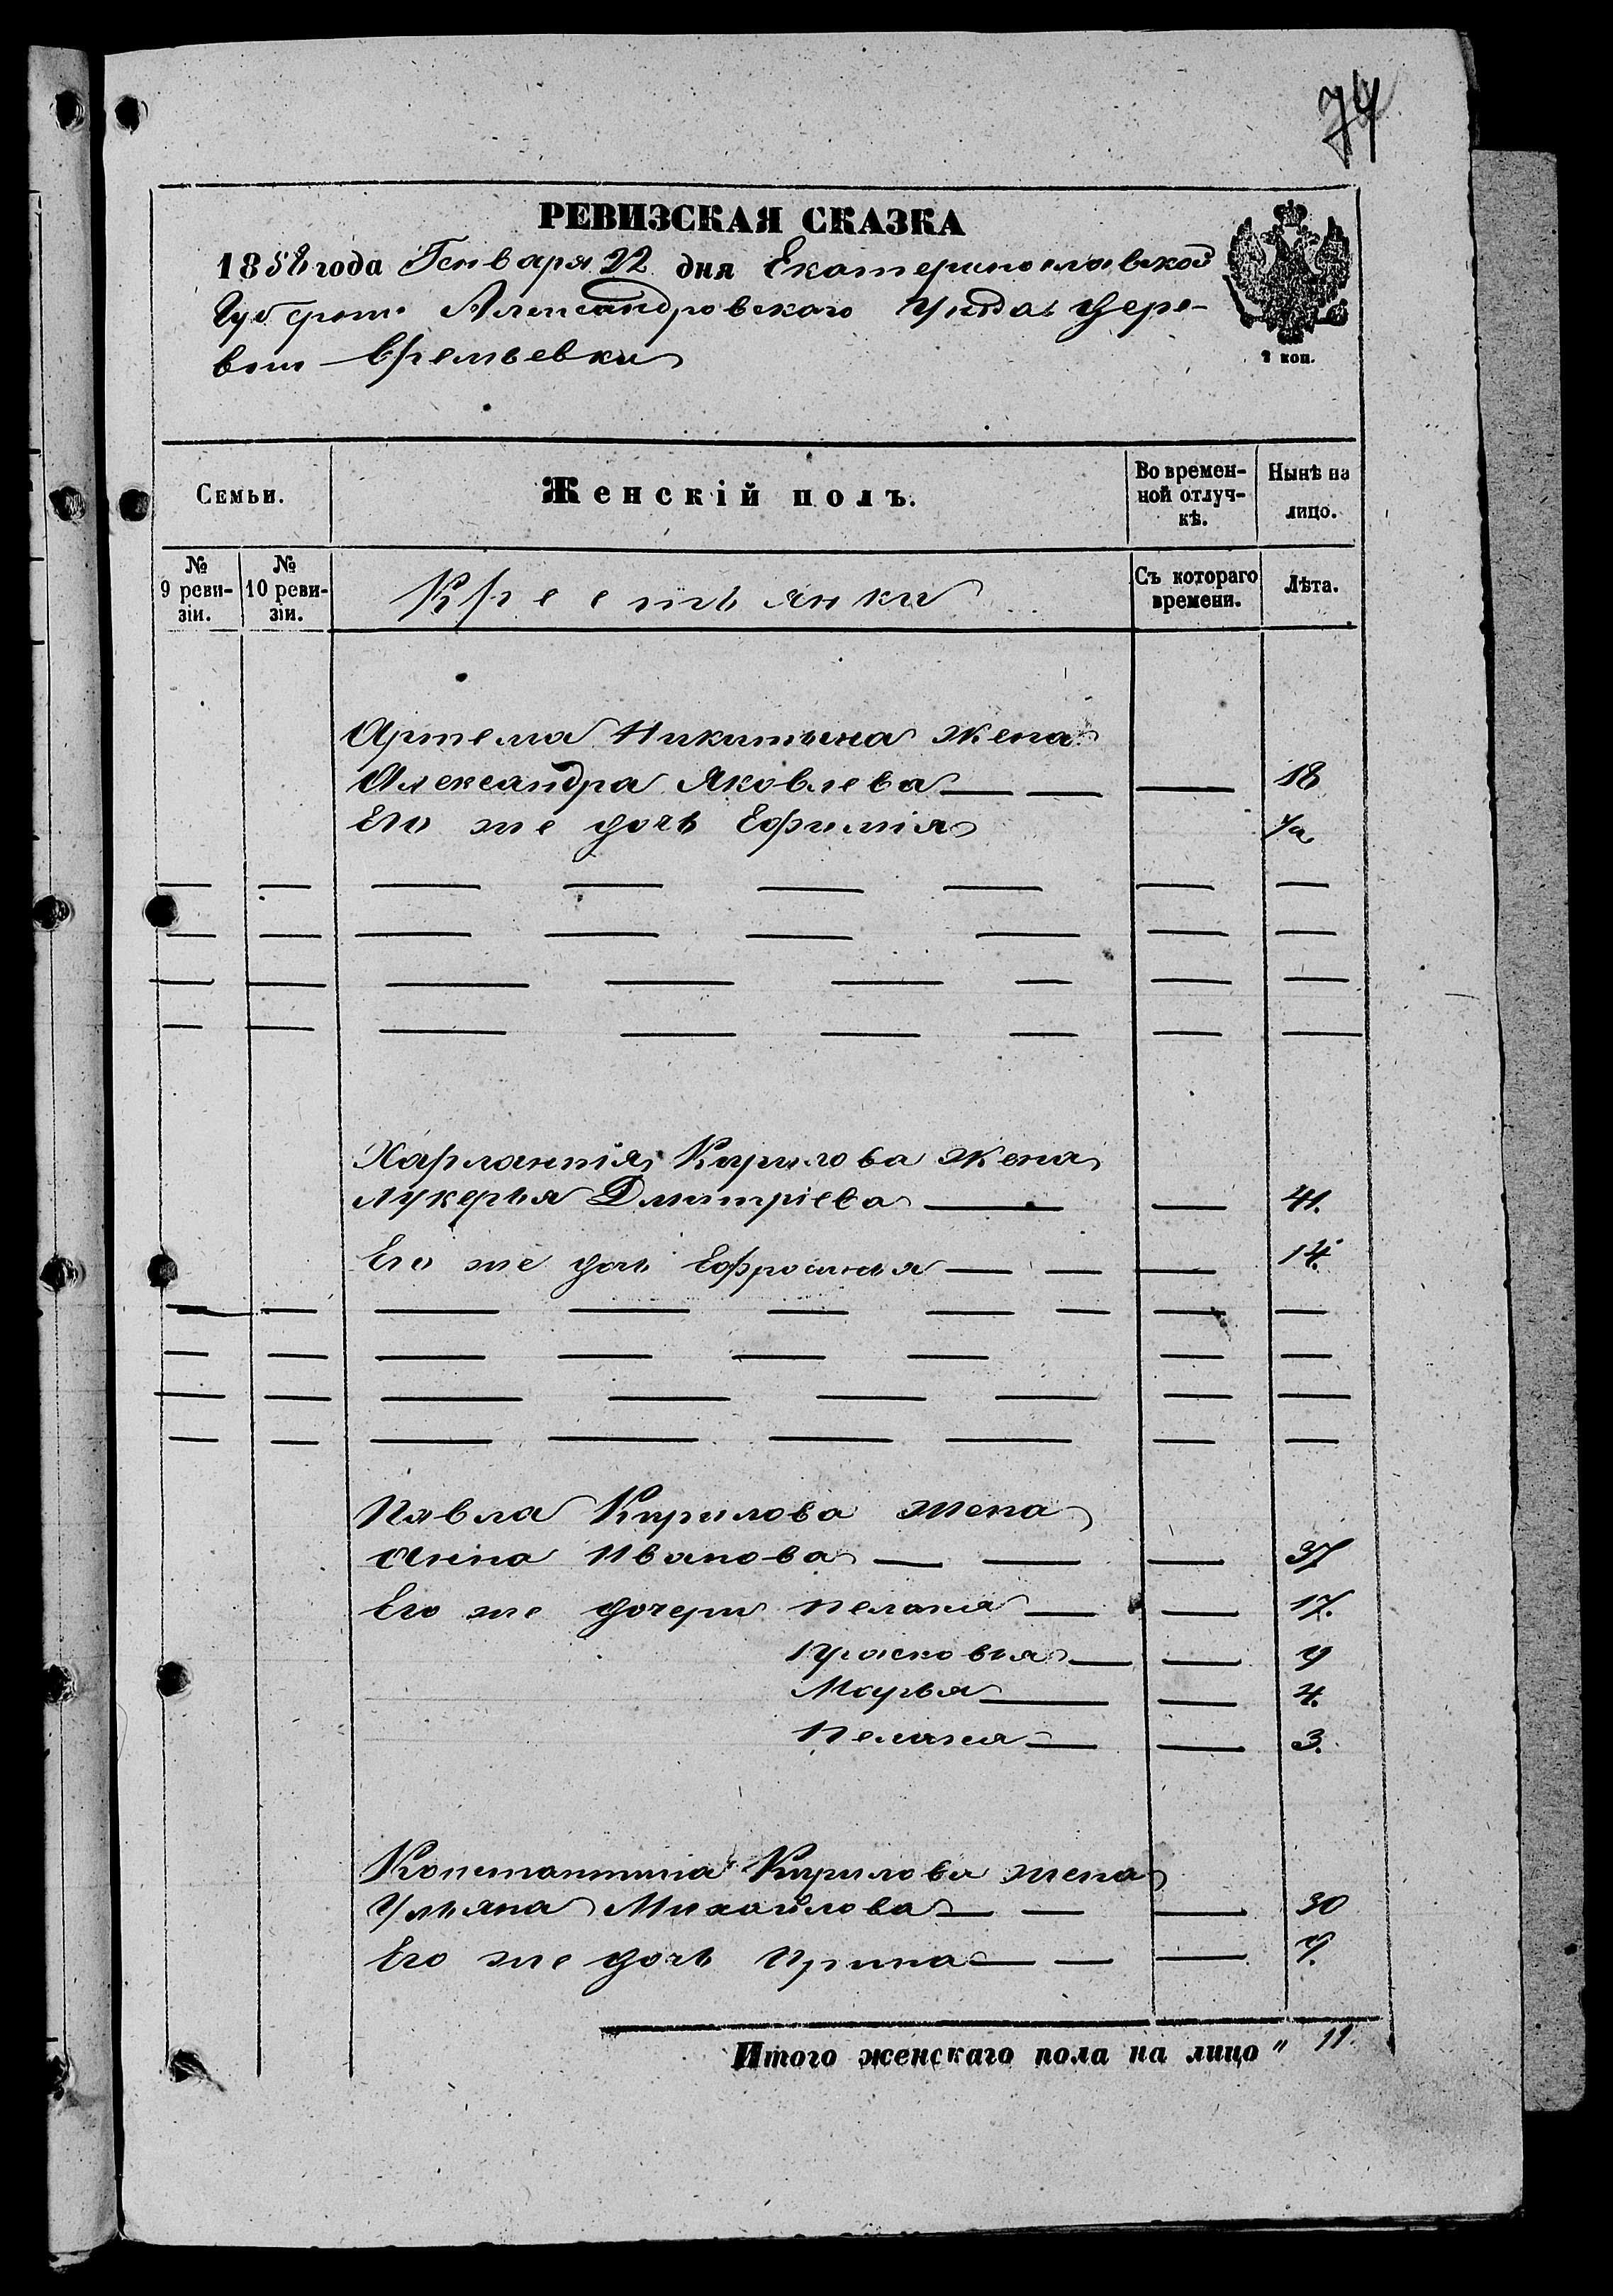 74
РЕВИЗСКАЯ СКАЗКА
1858 года Генваря 22 дня Екатеринославской
Губерніи Александровскаго Уѣзда дере-
вни Времьевки
2 коп.
Семьи.
Женскій полъ.
Во времен-
ной отлуч-
кѣ.
Нынѣ на
лицо.
№
9 реви-
зіи.
№
10 реви-
зіи.
Крестьянки
Съ котораго
времени.
Лѣта.
Артема Никитина жена
Александра Яковлева 18
Его же дочь Ефимія
Харлантія Кирилова жена
Лукерья Дмитріева 41.
Его же дочь Ефросинья 14.
Павла Кирилова жена
Анна Иванова 37
Его же дочери Пелагия 17.
Прасковья 9
Марья 4.
Пелагия 3.
Константина Кирилова жена
Ульяна Михайлова 30
Его же дочь Ирина 9.
Итого женскаго пола на лицо " 11.